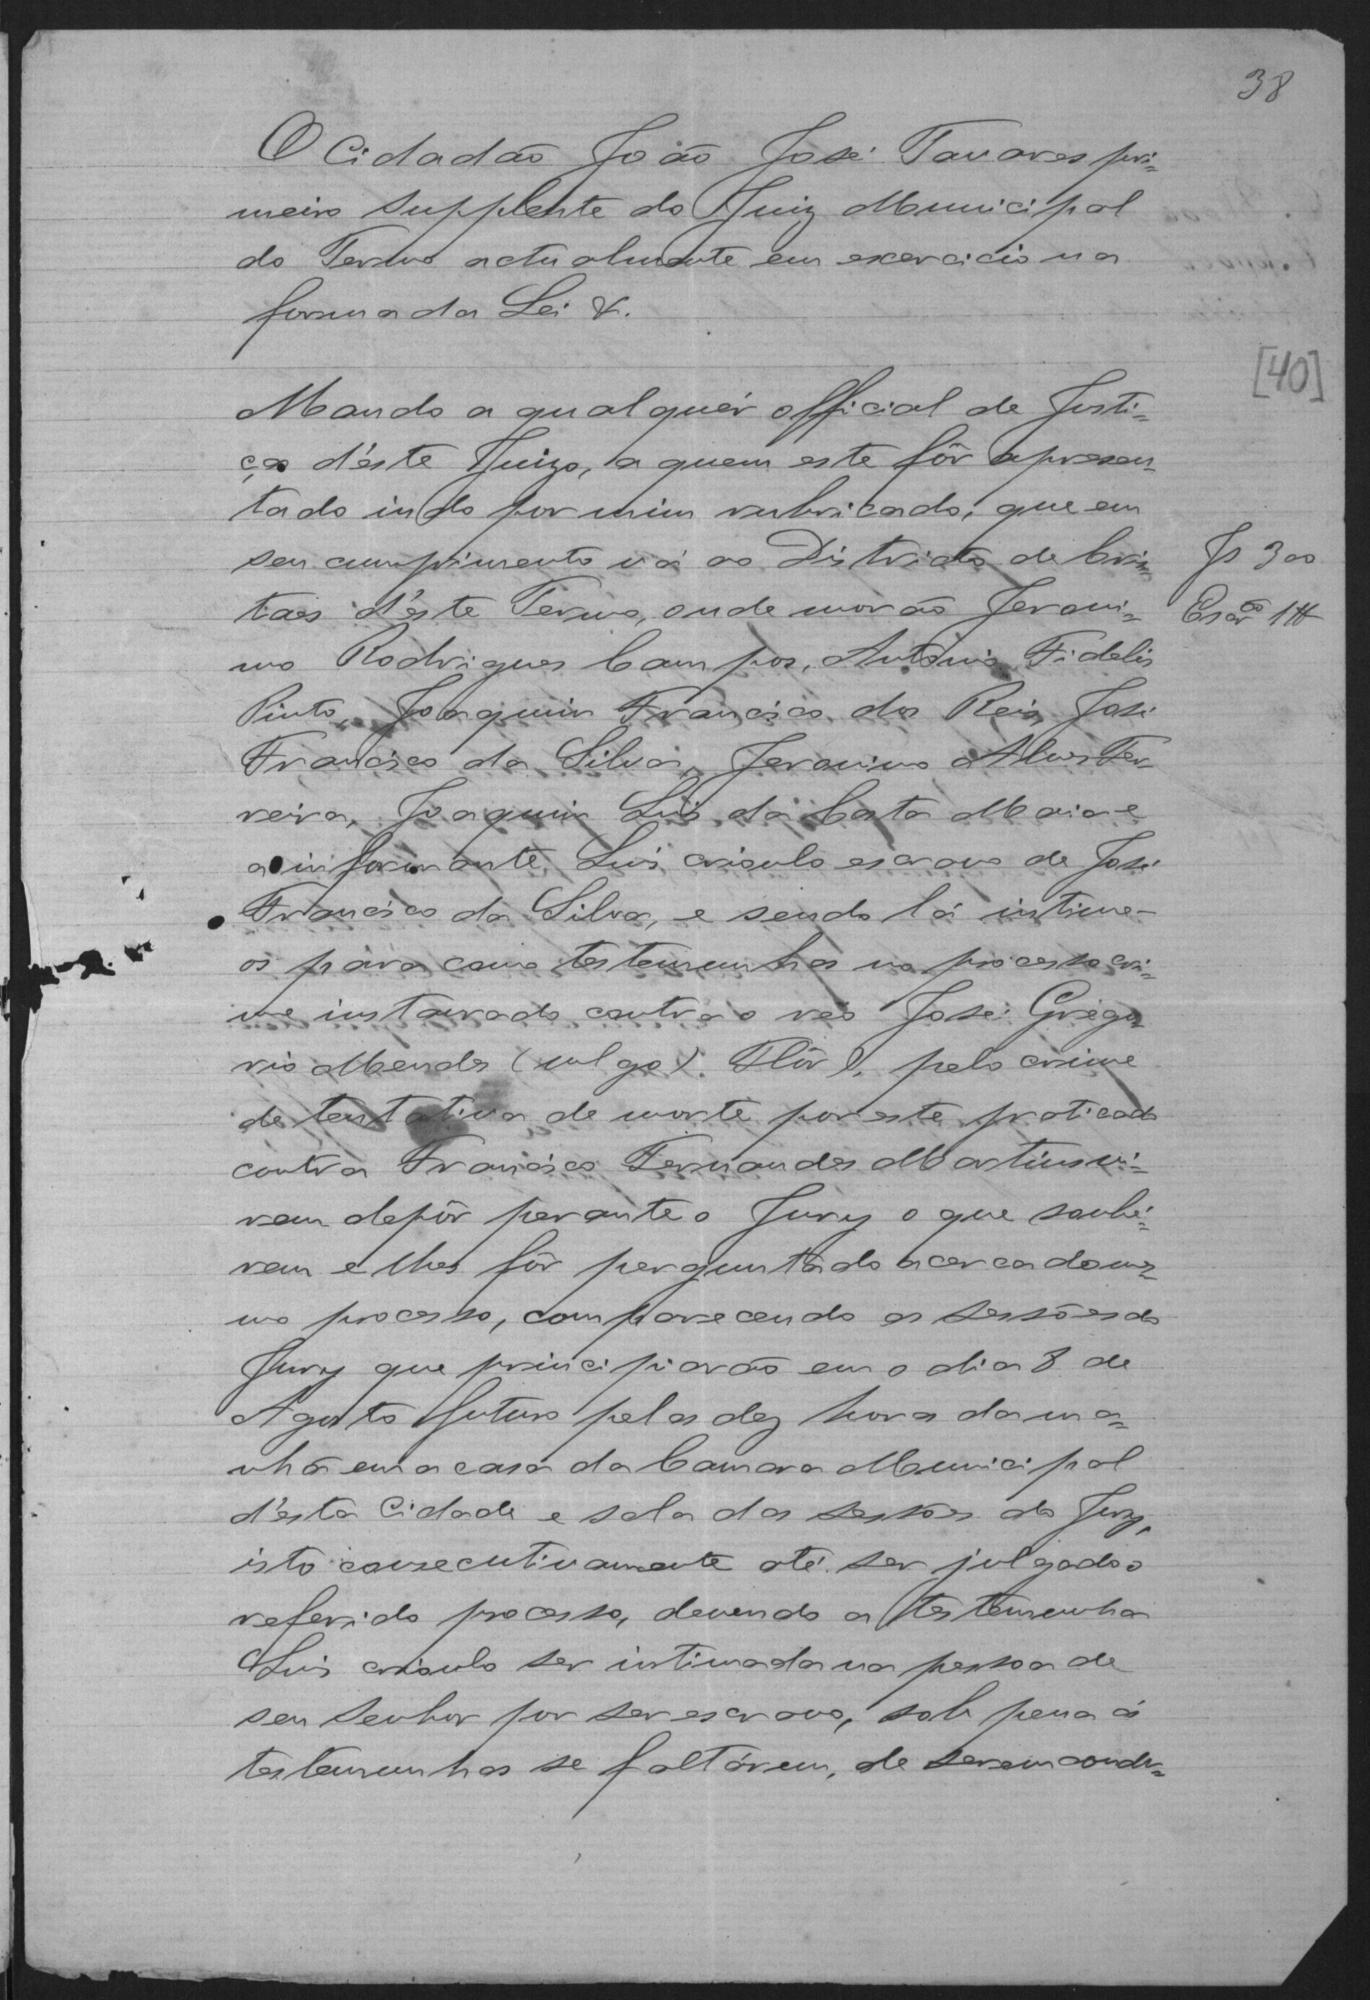 38
O Cidadão João José Tavares pri=
meiro Supplente do Juiz Municipal
do Termo actualmente em exercicio na
forma da Lei &.
[40]
Mando a qualquér official de Justi=
ça d'éste Juizo, a quem este fôr apresen=
tado indo por mim rubricado, que em
seu cumprimento vá ao Districto de
Js 300
taes d'éste Termo, onde morão Jeroni=
1#
mo Rodrigues Campos, Antonio Fidelis
Pinto, Joaquim Francisco dos Reis, José
Francisco da Silva, Jeronimo Alves Fer=
reira, Joaquim Luis da Costa Maia e
o informante Luis crioulo escravo de José
Francisco da Silva, e sendo lá intime-
os para como testemunhas no processo cri=
me instaurado contra o réo José Grego=
rio Mendes (vulgo) Flôr), pelo crime
de tentativa de morte por este praticado
contra Francisco Fernandes Martins vi=
rem depôr perante o Jury o que soubé=
rem e lhes fôr perguntado acerca do mes=
mo processo, comparecendo as sessões do
Jury que principiarão em o dia 8 de
Agosto futuro pelas dez horas da ma=
nhã em a casa da Camara Municipal
d'ésta Cidade e sala das sessões do Jury,
isto consecutivamente até ser julgado o
referido processo, devendo a testemunha
Luis crioulo ser intimada na pessoa de
seu Senhor por ser escravo, sob pena ás
testemunhas se faltárem, de serem condu=